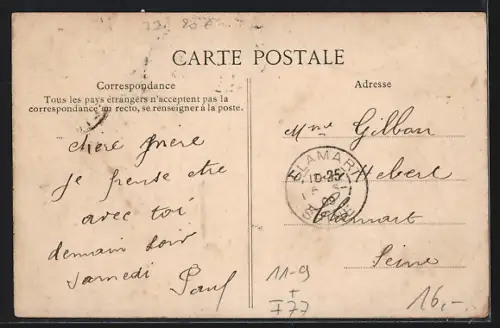 CARTE POSTALE
Correspondance
Tous les pays étrangers n'acceptent pas la
correspondance au recto, se renseigner à la poste.
chère mère
je pense être
avec toi
demain soir
samedi
Paul
Adresse
Mme Gilbon
Hebert
Clamart
Seine
CLAMART
10-25
09
SEINE
11-9
+
F77
16,-